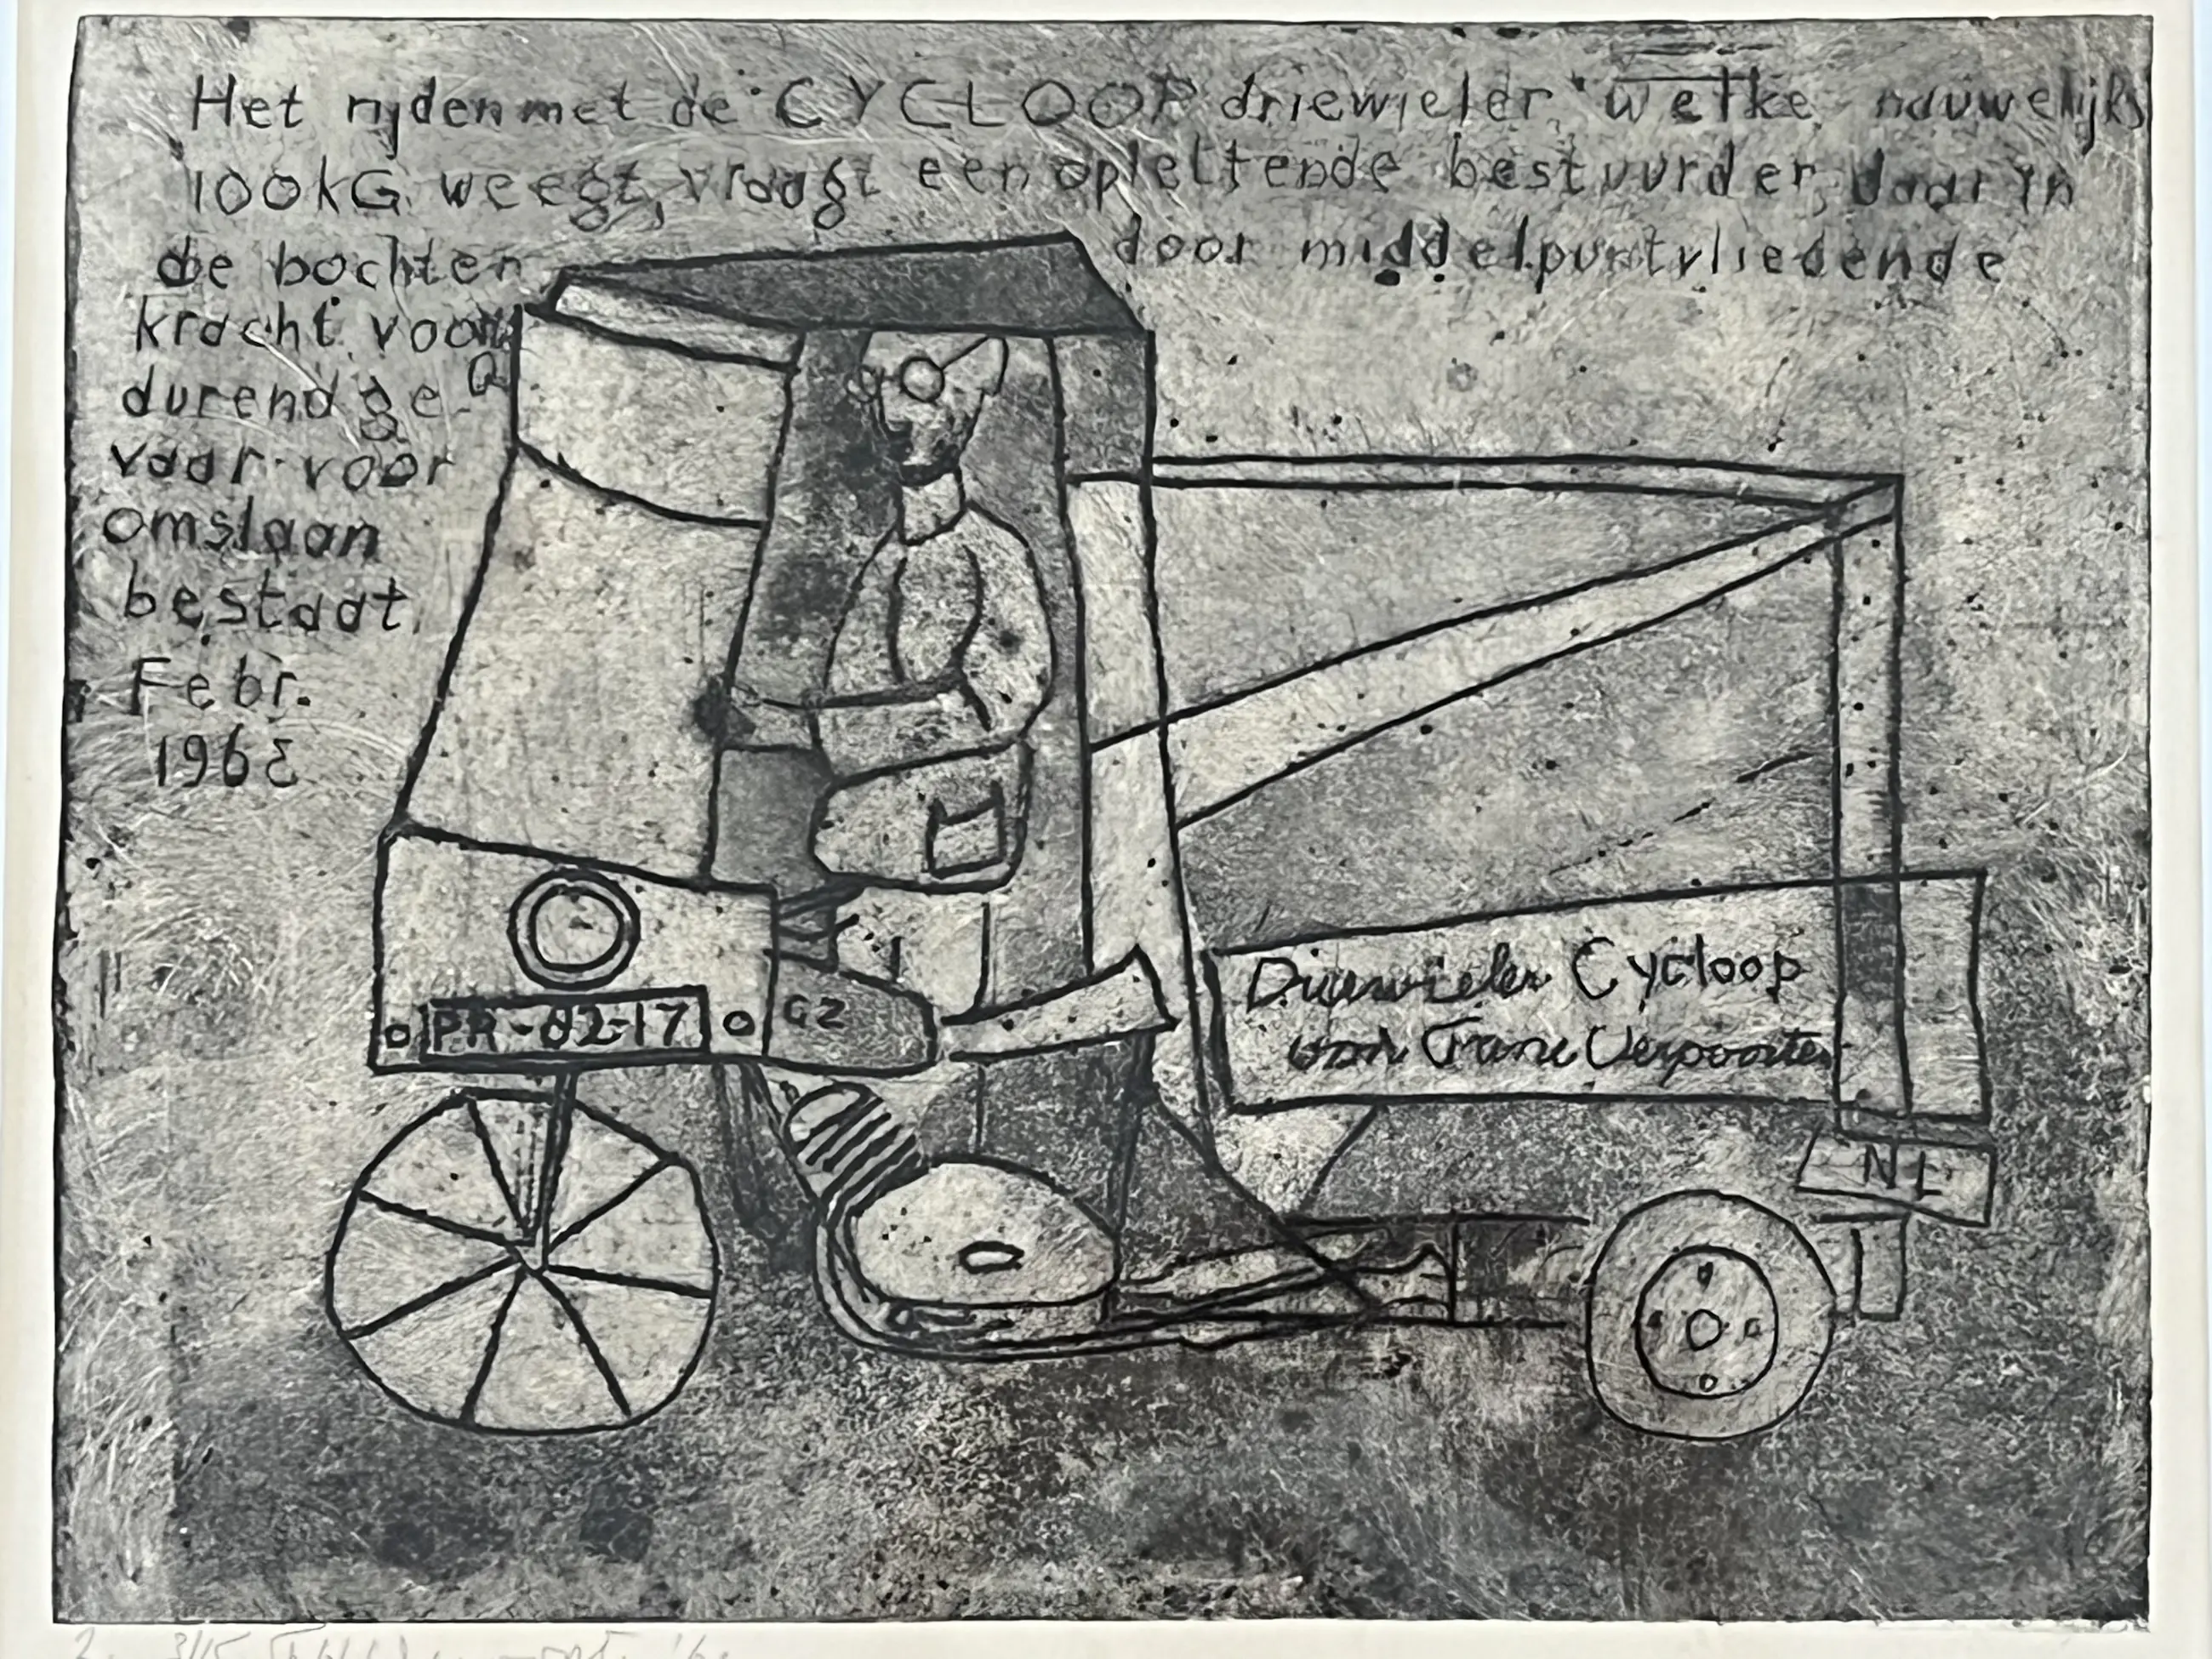 Het rijden met de CYCLOOP driewieler welke nauwelijks
100kG weegt, vraagt een oplettende bestuurder daar in
de bochten door middelpuntvliedende
kracht voort
durend ge-
vaar voor
omslaan
bestaat.
Febr.
196
PR-82-17
GZ
Driewieler Cycloop
van Frans Verpoorten
NL
3/15